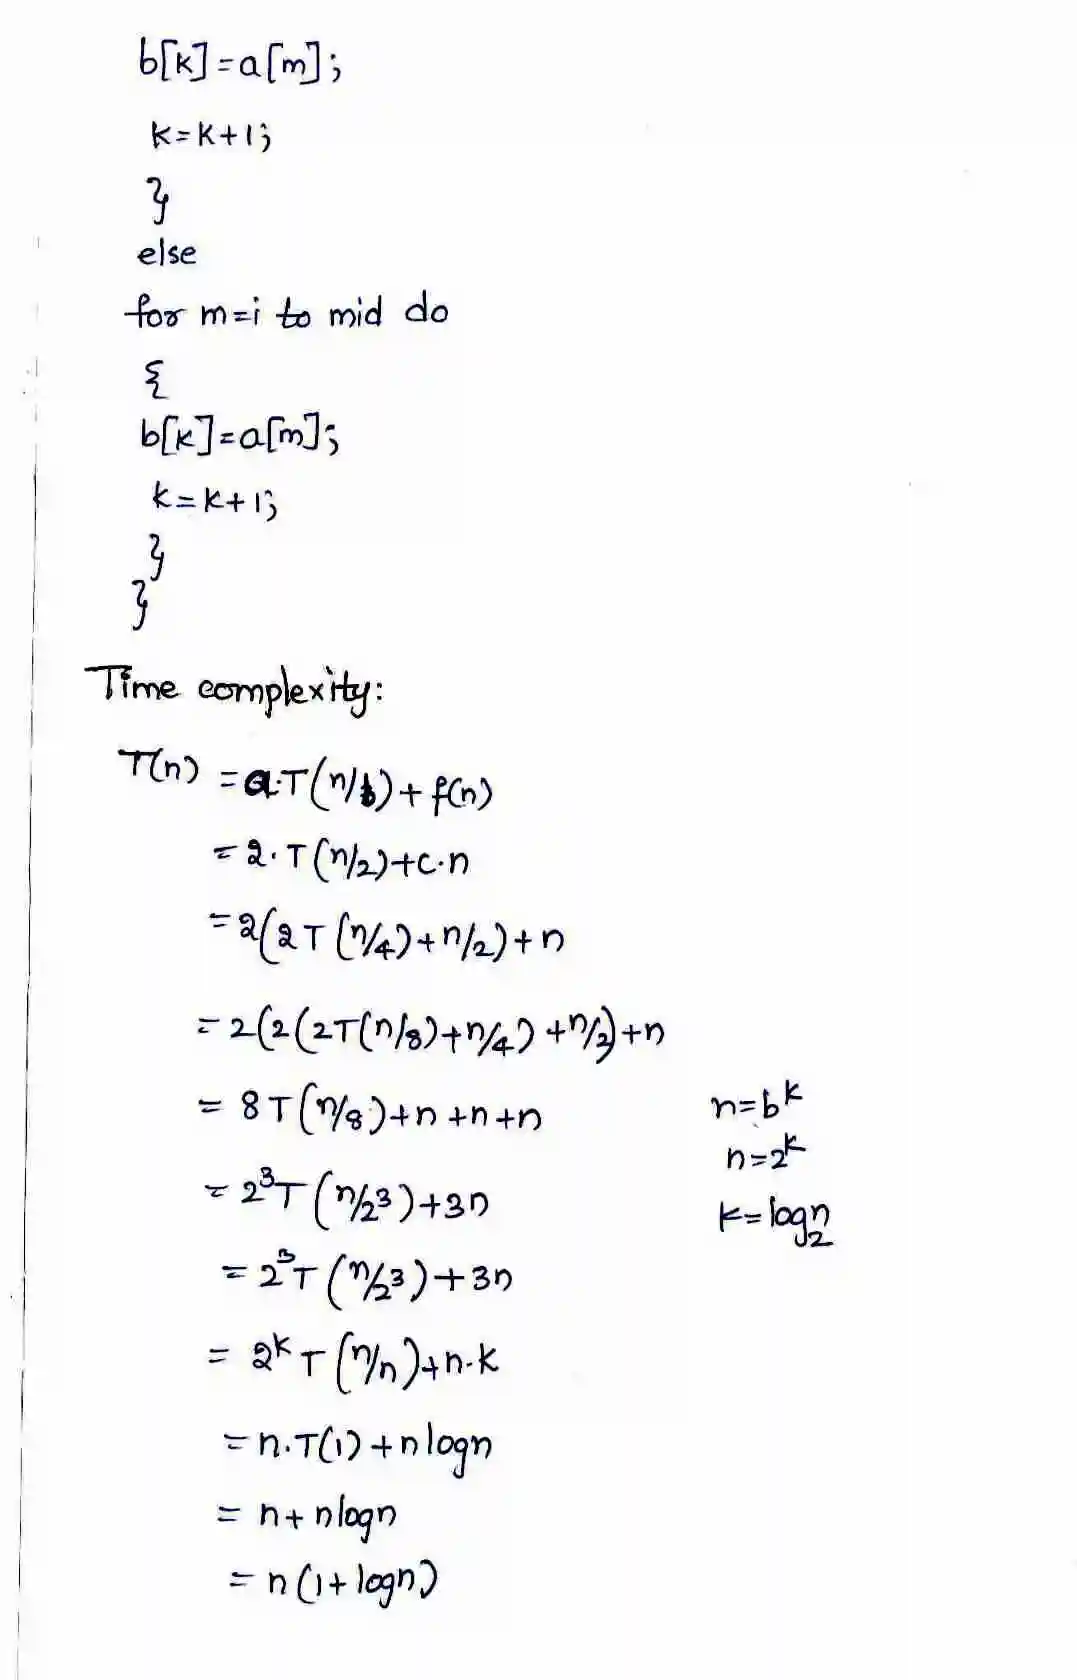 b[k]=a[m];
k=k+1;
}
else
for m=i to mid do
{
b[k]=a[m];
k=k+1;
}
}
Time complexity:
T(n) = a.T(n/b)+f(n)
= 2.T(n/2)+c.n
= 2(2T(n/4)+n/2)+n
= 2(2(2T(n/8)+n/4)+n/2)+n
= 8T(n/8)+n+n+n
n=b^k
n=2^k
= 2^3T(n/2^3)+3n
k=log₂n
= 2^3T(n/2^3)+3n
= 2^kT(n/n)+n.k
= n.T(1)+nlogn
= n+nlogn
= n(1+logn)